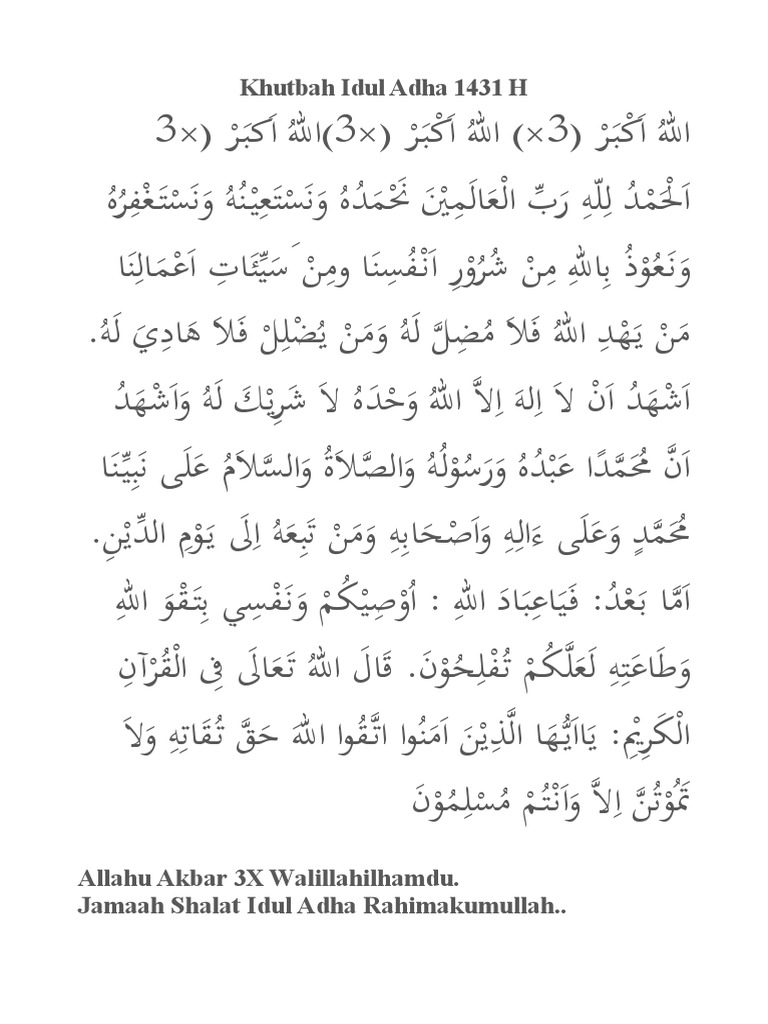 Khutbah Idul Adha 1431 H
اللهُ اَكْبَرْ (3×) اللهُ اَكْبَرْ (×3)اللهُ اَكبَرْ (×3
اَلْحَمْدُ لِلّهِ رَبِّ الْعَالَمِيْنَ نَحْمَدُهُ وَنَسْتَعِيْنُهُ وَنَسْتَغْفِرُهُ
وَنَعُوْذُ بِاللهِ مِنْ شُرُوْرِ اَنْفُسِنَا ومِنْ َسَيِّئَاتِ اَعْمَالِنَا
مَنْ يَهْدِ اللهُ فَلاَ مُضِلَّ لَهُ وَمَنْ يُضْلِلْ فَلاَ هَادِيَ لَهُ.
اَشْهَدُ اَنْ لاَ اِلهَ اِلاَّ اللهُ وَحْدَهُ لاَ شَرِيْكَ لَهُ وَاَشْهَدُ
اَنَّ مُحَمَّدًا عَبْدُهُ وَرَسُوْلُهُ وَالصَّلاَةُ وَالسَّلاَمُ عَلَى نَبِيِّنَا
مُحَمَّدٍ وَعَلَى ءَالِهِ وَاَصْحَابِهِ وَمَنْ تَبِعَهُ اِلَى يَوْمِ الدِّيْنِ.
اَمَّا بَعْدُ: فَيَاعِبَادَ اللهِ : اُوْصِيْكُمْ وَنَفْسِي بِتَقْوَ اللهِ
وَطَاعَتِهِ لَعَلَّكُمْ تُفْلِحُوْنَ. قَالَ اللهُ تَعَالَى فِى الْقُرْآنِ
الْكَرِيْمِ: يَااَيُّهَا الَّذِيْنَ اَمَنُوا اتَّقُوا اللهَ حَقَّ تُقَاتِهِ وَلاَ
تَمُوْتُنَّ اِلاَّ وَاَنْتُمْ مُسْلِمُوْنَ
Allahu Akbar 3X Walillahilhamdu.
Jamaah Shalat Idul Adha Rahimakumullah..